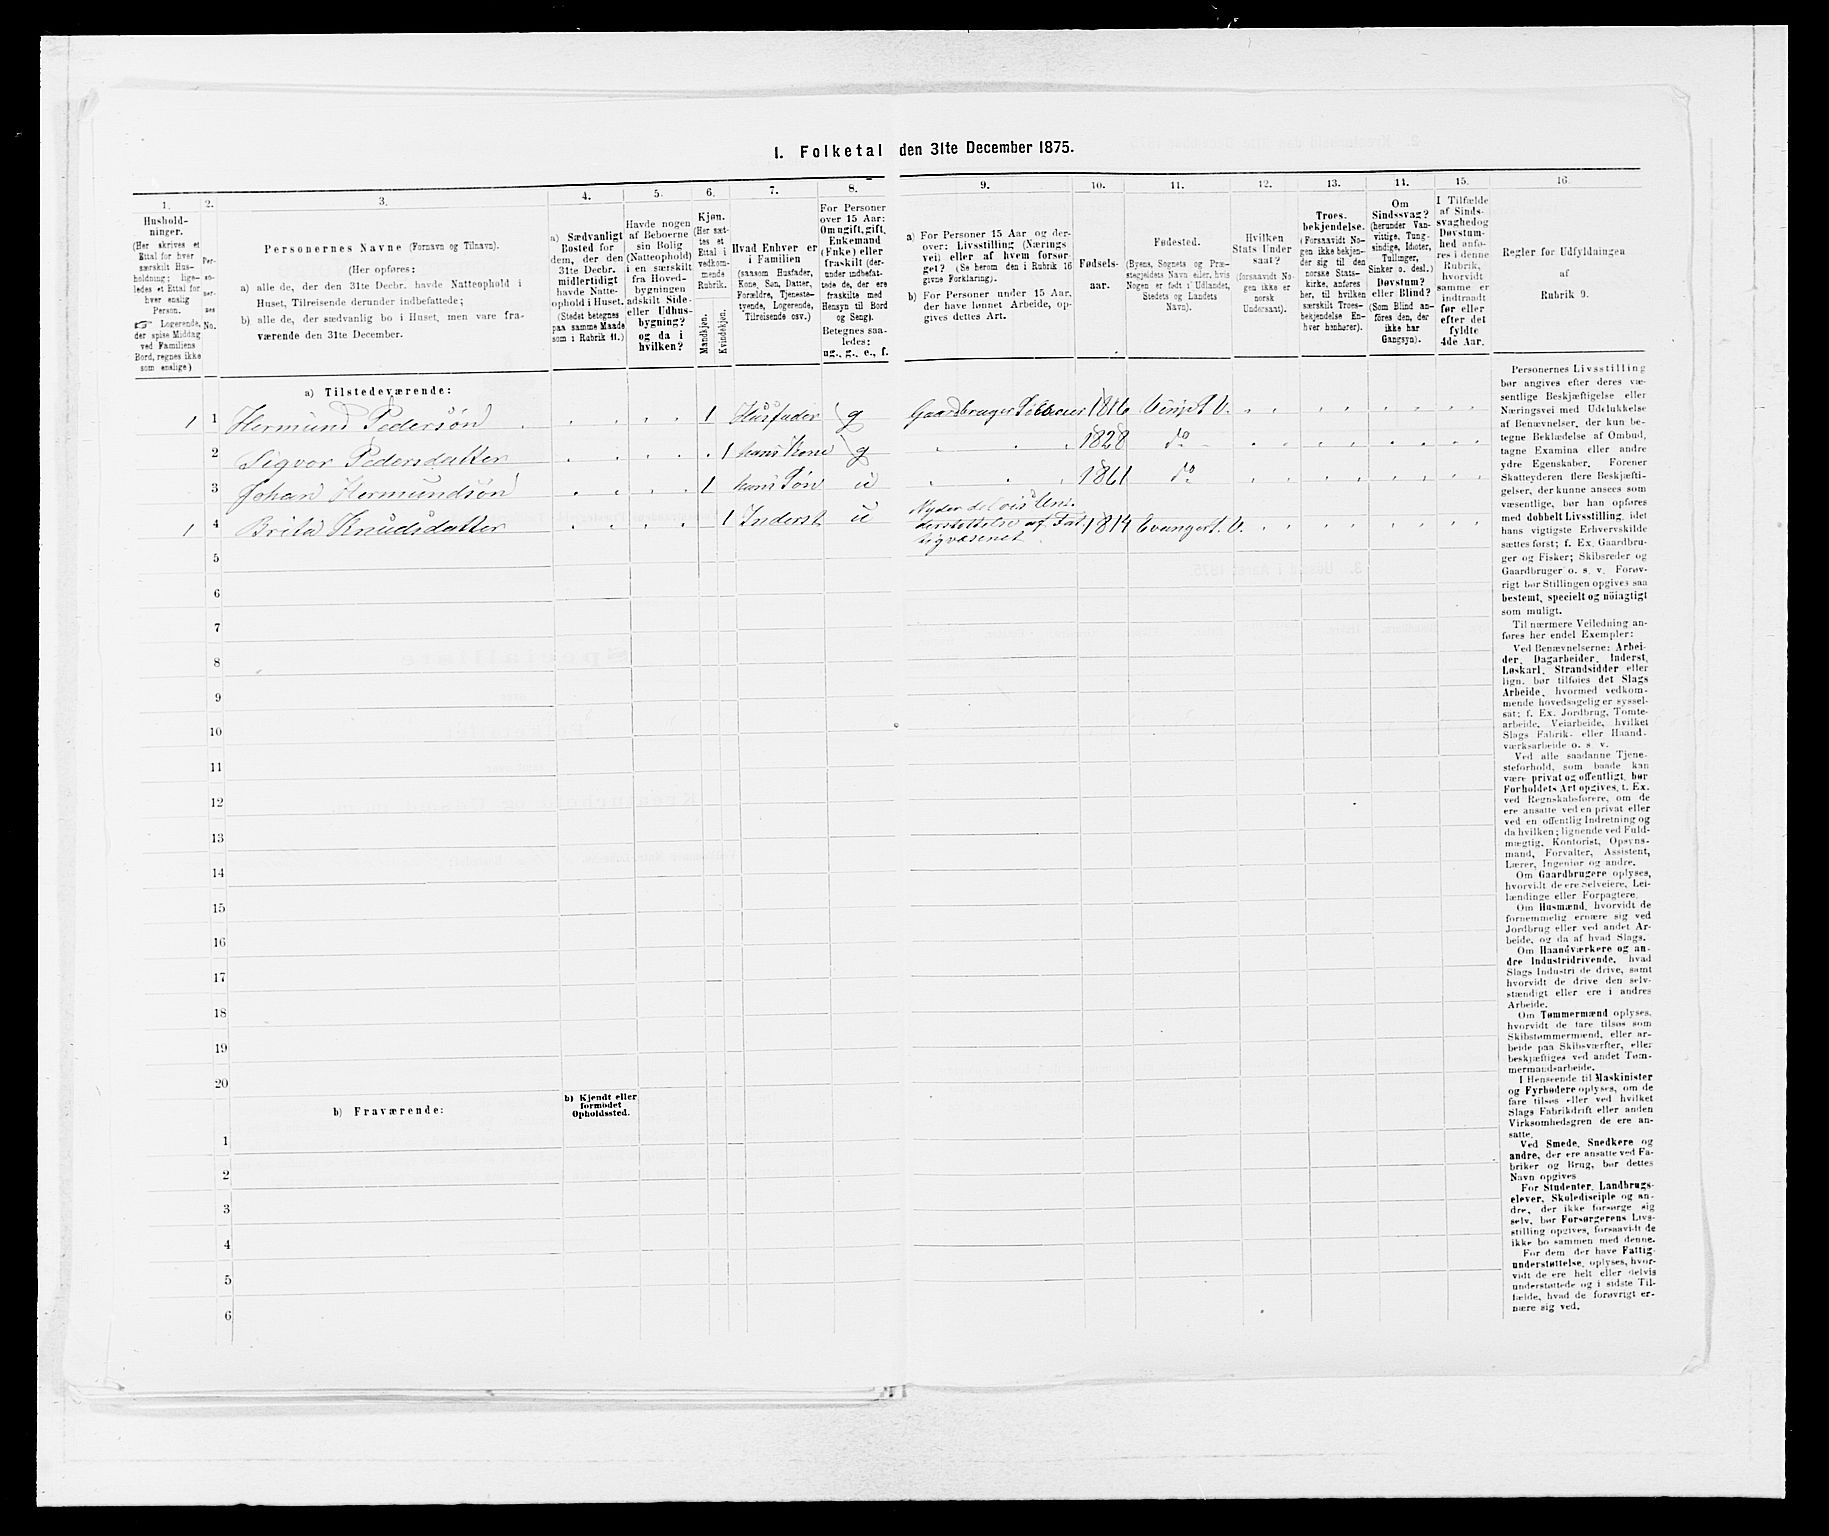 I. Folketal den 31te December 1875.
1.
Hushold-
ninger.
(Her skrives et
Ettal for hver
særskilt Hus-
holdning; lige-
ledes et Ettal for
hver enslig
Person.
☞ Logerende,
der spise Middag
ved Familiens
Bord, regnes ikke
som enslige)
2.
Per-
so-
ner-
nes
No.
3.
Personernes Navne (Fornavn og Tilnavn).
(Her opføres:
a) alle de, der den 31te Decbr. havde Natteophold i
Huset, Tilreisende derunder indbefattede;
b) alle de, der sædvanlig bo i Huset, men vare fra-
værende den 31te December.
4.
a) Sædvanligt
Bosted for
dem, der den
31te Decbr.
midlertidigt
havde Natte-
ophold i Huset.
(Stedet betegnes
paa samme Maade
som i Rubrik 11.)
5.
Havde nogen
af Beboerne
sin Bolig
(Natteophold)
i en særskilt
fra Hoved-
bygningen
adskilt Side-
eller Udhus-
bygning?
og da i
hvilken?
6.
Kjøn.
(Her sæt-
tes et
Ettal i
vedkom-
mende
Rubrik.
Mandkjøn.
Kvindekjøn.
7.
Hvad Enhver er
i Familien
(saasom Husfader,
Kone, Søn, Datter,
Forældre, Tjeneste-
tyende, Logerende,
Tilreisende osv.)
8.
For Personer
over 15 Aar:
Om ugift, gift,
Enkemand
(Enke) eller
fraskilt (der-
under indbefat-
tede de, der ere
fraskilte med
Hensyn til Bord
og Seng).
Betegnes saa-
ledes:
ug., g., e., f.
9.
a) For Personer 15 Aar og der-
over: Livsstilling (Nærings
vei) eller af hvem forsør-
get? (Se herom den i Rubrik 16
givne Forklaring).
b) For Personer under 15 Aar,
der have lønnet Arbeide, op-
gives dettes Art.
10.
Fødsels-
aar.
11.
Fødested.
(Byens, Sognets og Præ-
stegjeldets Navn eller, hvis
Nogen er født i Udlandet,
Stedets og Landets
Navn).
12.
Hvilken
Stats Under
saat?
(forsaavidt No-
gen ikke er
norsk
Undersaat).
13.
Troes-
bekjendelse.
(Forsaavidt No-
gen ikke bekjen-
der sig til den
norske Stats-
kirke, anføres
her, til hvilken
særskilt Troes-
bekjendelse En-
hver henhører).
14.
Om
Sindssvag?
(herunder Van-
vittige, Tung-
sindige, Idioter,
Tullinger,
Sinker o. desl.)
Døvstum?
eller Blind?
(Som Blind an-
føres den, der
ikke har
Gangsyn).
15.
I Tilfælde
af Sinds-
svaghedog
Døvstum-
hed anfø-
res i denne
Rubrik,
hvorvidt
samme er
indtraadt
før eller
efter det
fyldte
4de Aar.
16.
Regler for Udfyldningen
af
Rubrik 9.
a) Tilstedeværende:
1 1 Hermund Pedersøn 1 Husfader g Gaardbruger Selveier 1816 Vinje S. V.
2 Sigvor Pedersdatter 1 hans Kone g 1828 do
3 Johan Hermundsøn 1 hans Søn u 1861 do
1 4 Brita Knudsdatter 1 Inderst u Nyder delvis Un-
derstøttelse af Fat-
tigvæsenet 1814 Evanger S. V.
5
6
7
8
9
10
11
12
13
14
15
16
17
18
19
20
b) Fraværende:
b) Kjendt eller
formodet
Opholdssted.
1
2
3
4
5
6
Personernes Livsstilling
bør angives efter deres væ-
sentlige Beskjæftigelse eller
Næringsvei med Udelukkelse
af Benævnelser, der kun be-
tegne Beklædelse af Ombud,
tagne Examina eller andre
ydre Egenskaber. Forener
Skatteyderen flere Beskjæfti-
gelser, der kunne ansees som
væsentlige, bør han opføres
med dobbelt Livsstilling, idet
hans vigtigste Erhvervskilde
sættes først; f. Ex. Gaardbru-
ger og Fisker; Skibsreder og
Gaardbruger o. s. v. Forøv-
rigt bør Stillingen opgives saa
bestemt, specielt og nöiagtigt
som muligt.
Til nærmere Veiledning an-
føres her endel Exempler:
Ved Benævnelserne: Arbei-
der, Dagarbeider, Inderst,
Løskarl, Strandsidder eller
lign. bør tilføies det Slags
Arbeide, hvormed vedkom-
mende hovedsagelig er syssel-
sat; f. Ex. Jordbrug, Tomte-
arbeide, Veiarbeide, hvilket
Slags Fabrik- eller Haand-
værksarbeide o. s. v.
Ved alle saadanne Tjene-
steforhold, som baade kan
være privat og offentligt, bør
Forholdets Art opgives, t. Ex.
ved Regnskabsførere, om de
ere ansatte ved en privat eller
ved en offentlig Indretning og
da hvilken; lignende ved Fuld-
mægtig, Kontorist, Opsyns-
mand, Forvalter, Assistent,
Lærer, Ingeniør og andre.
Om Gaardbrugere oplyses,
hvorvidt de ere Selveiere, Lei-
lændinge eller Forpagtere.
Om Husmænd, hvorvidt de
fornemmelig ernære sig ved
Jordbrug eller ved andet Ar-
beide, og da af hvad Slags.
Om Haandværkere og an-
dre Industridrivende, hvad
Slags Industri de drive, samt
hvorvidt de drive den selv-
stændigt eller ere i andres
Arbeide.
Om Tømmermænd oplyses,
hvorvidt de fare tilsøs som
Skibstømmermænd, eller ar-
beide paa Skibsværfter, eller
beskjæftiges ved andet Tøm-
mermandsarbeide.
I Henseende til Maskinister
og Fyrbødere oplyses, om de
fare tilsøs eller ved hvilket
Slags Fabrikdrift eller anden
Virksomhedsgren de ere an-
satte.
Ved Smede, Snedkere og
andre, der ere ansatte ved Fa-
briker og Brug, bør dettes
Navn opgives
For Studenter, Landbrugs-
elever, Skoledisciple og an-
dre, der ikke forsørge sig
selv, bør Forsørgerens Livs-
stilling opgives, forsaavidt de
ikke bo sammen med denne.
For dem der have Fattig-
understøttelse, oplyses, hvor-
vidt de ere helt eller delvis
understøttede og i sidste Til-
fælde, hvad de forøvrigt er-
nære sig ved.